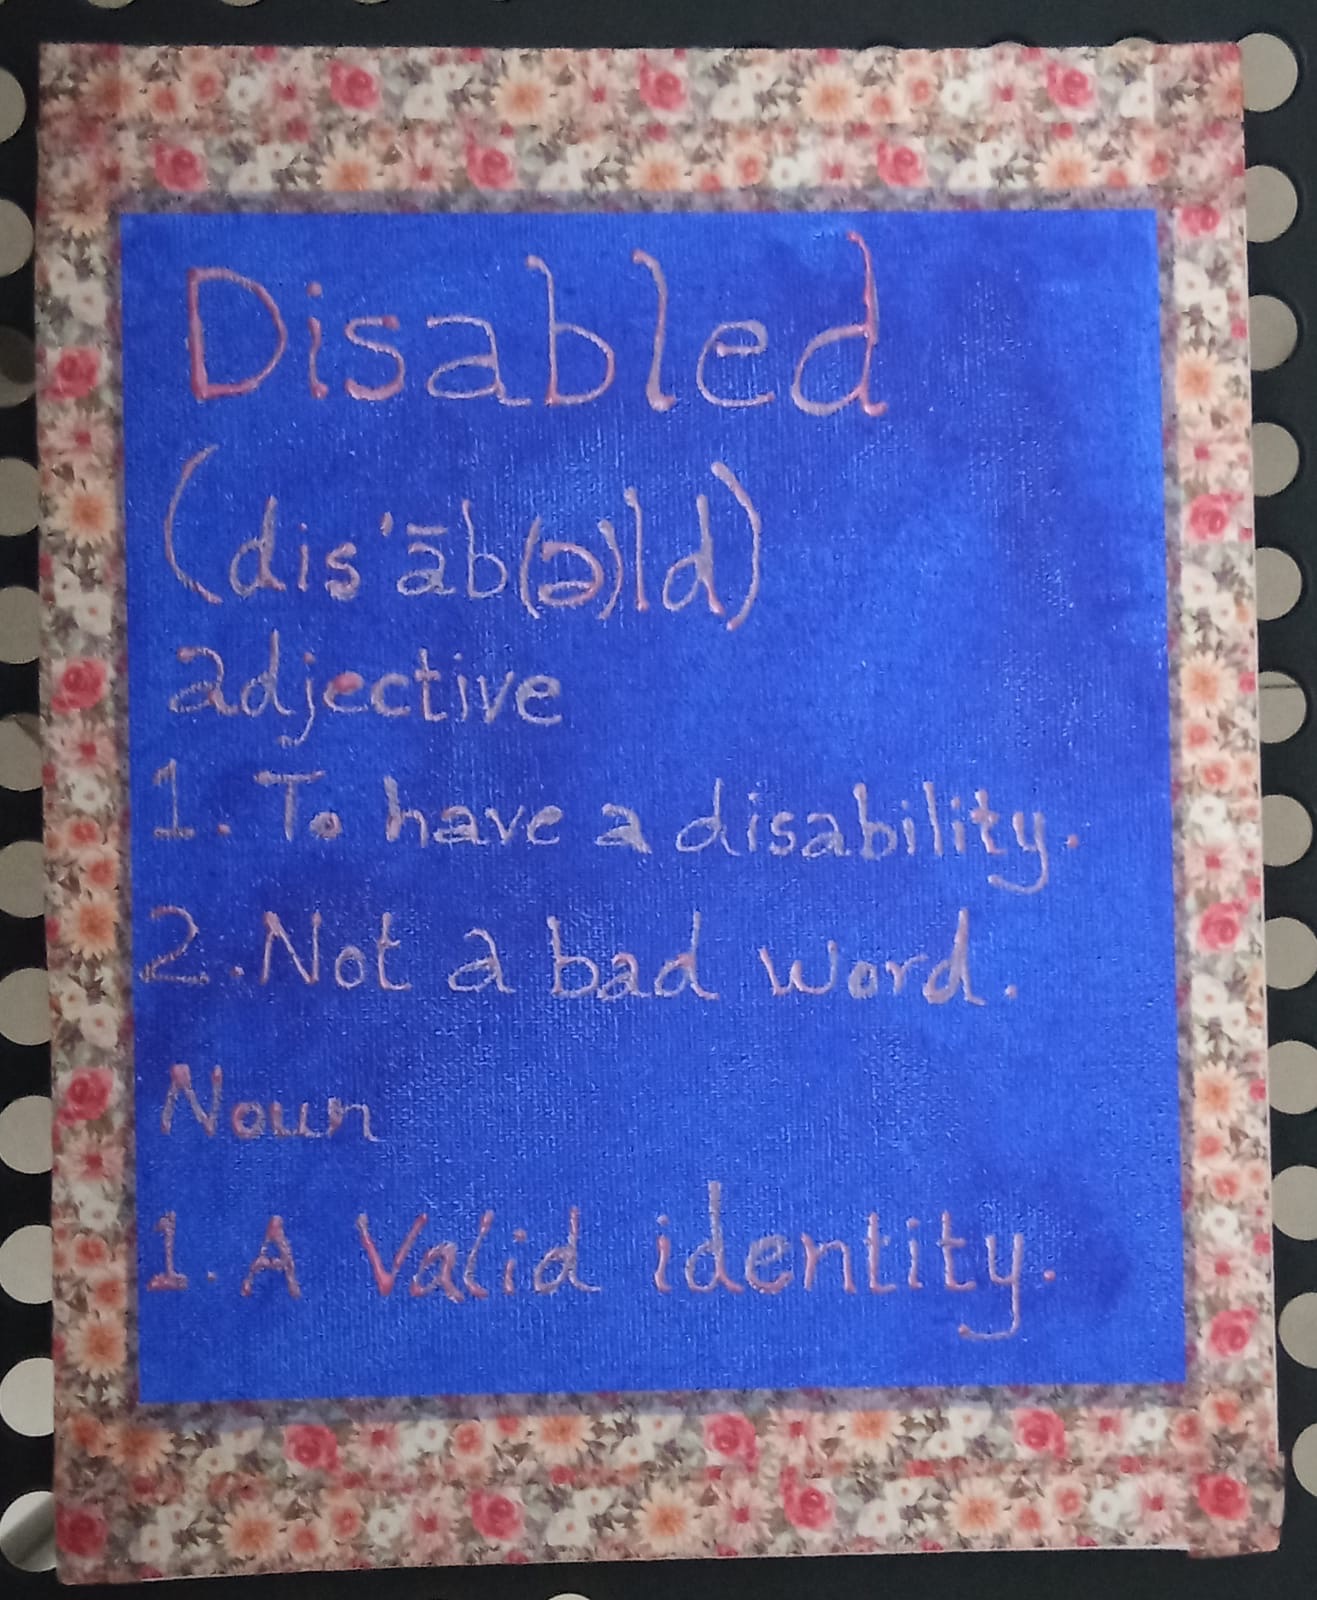 Disabled
(dis'āb(ə)ld)
adjective
1. To have a disability.
2. Not a bad word.
Noun
1. A Valid identity.